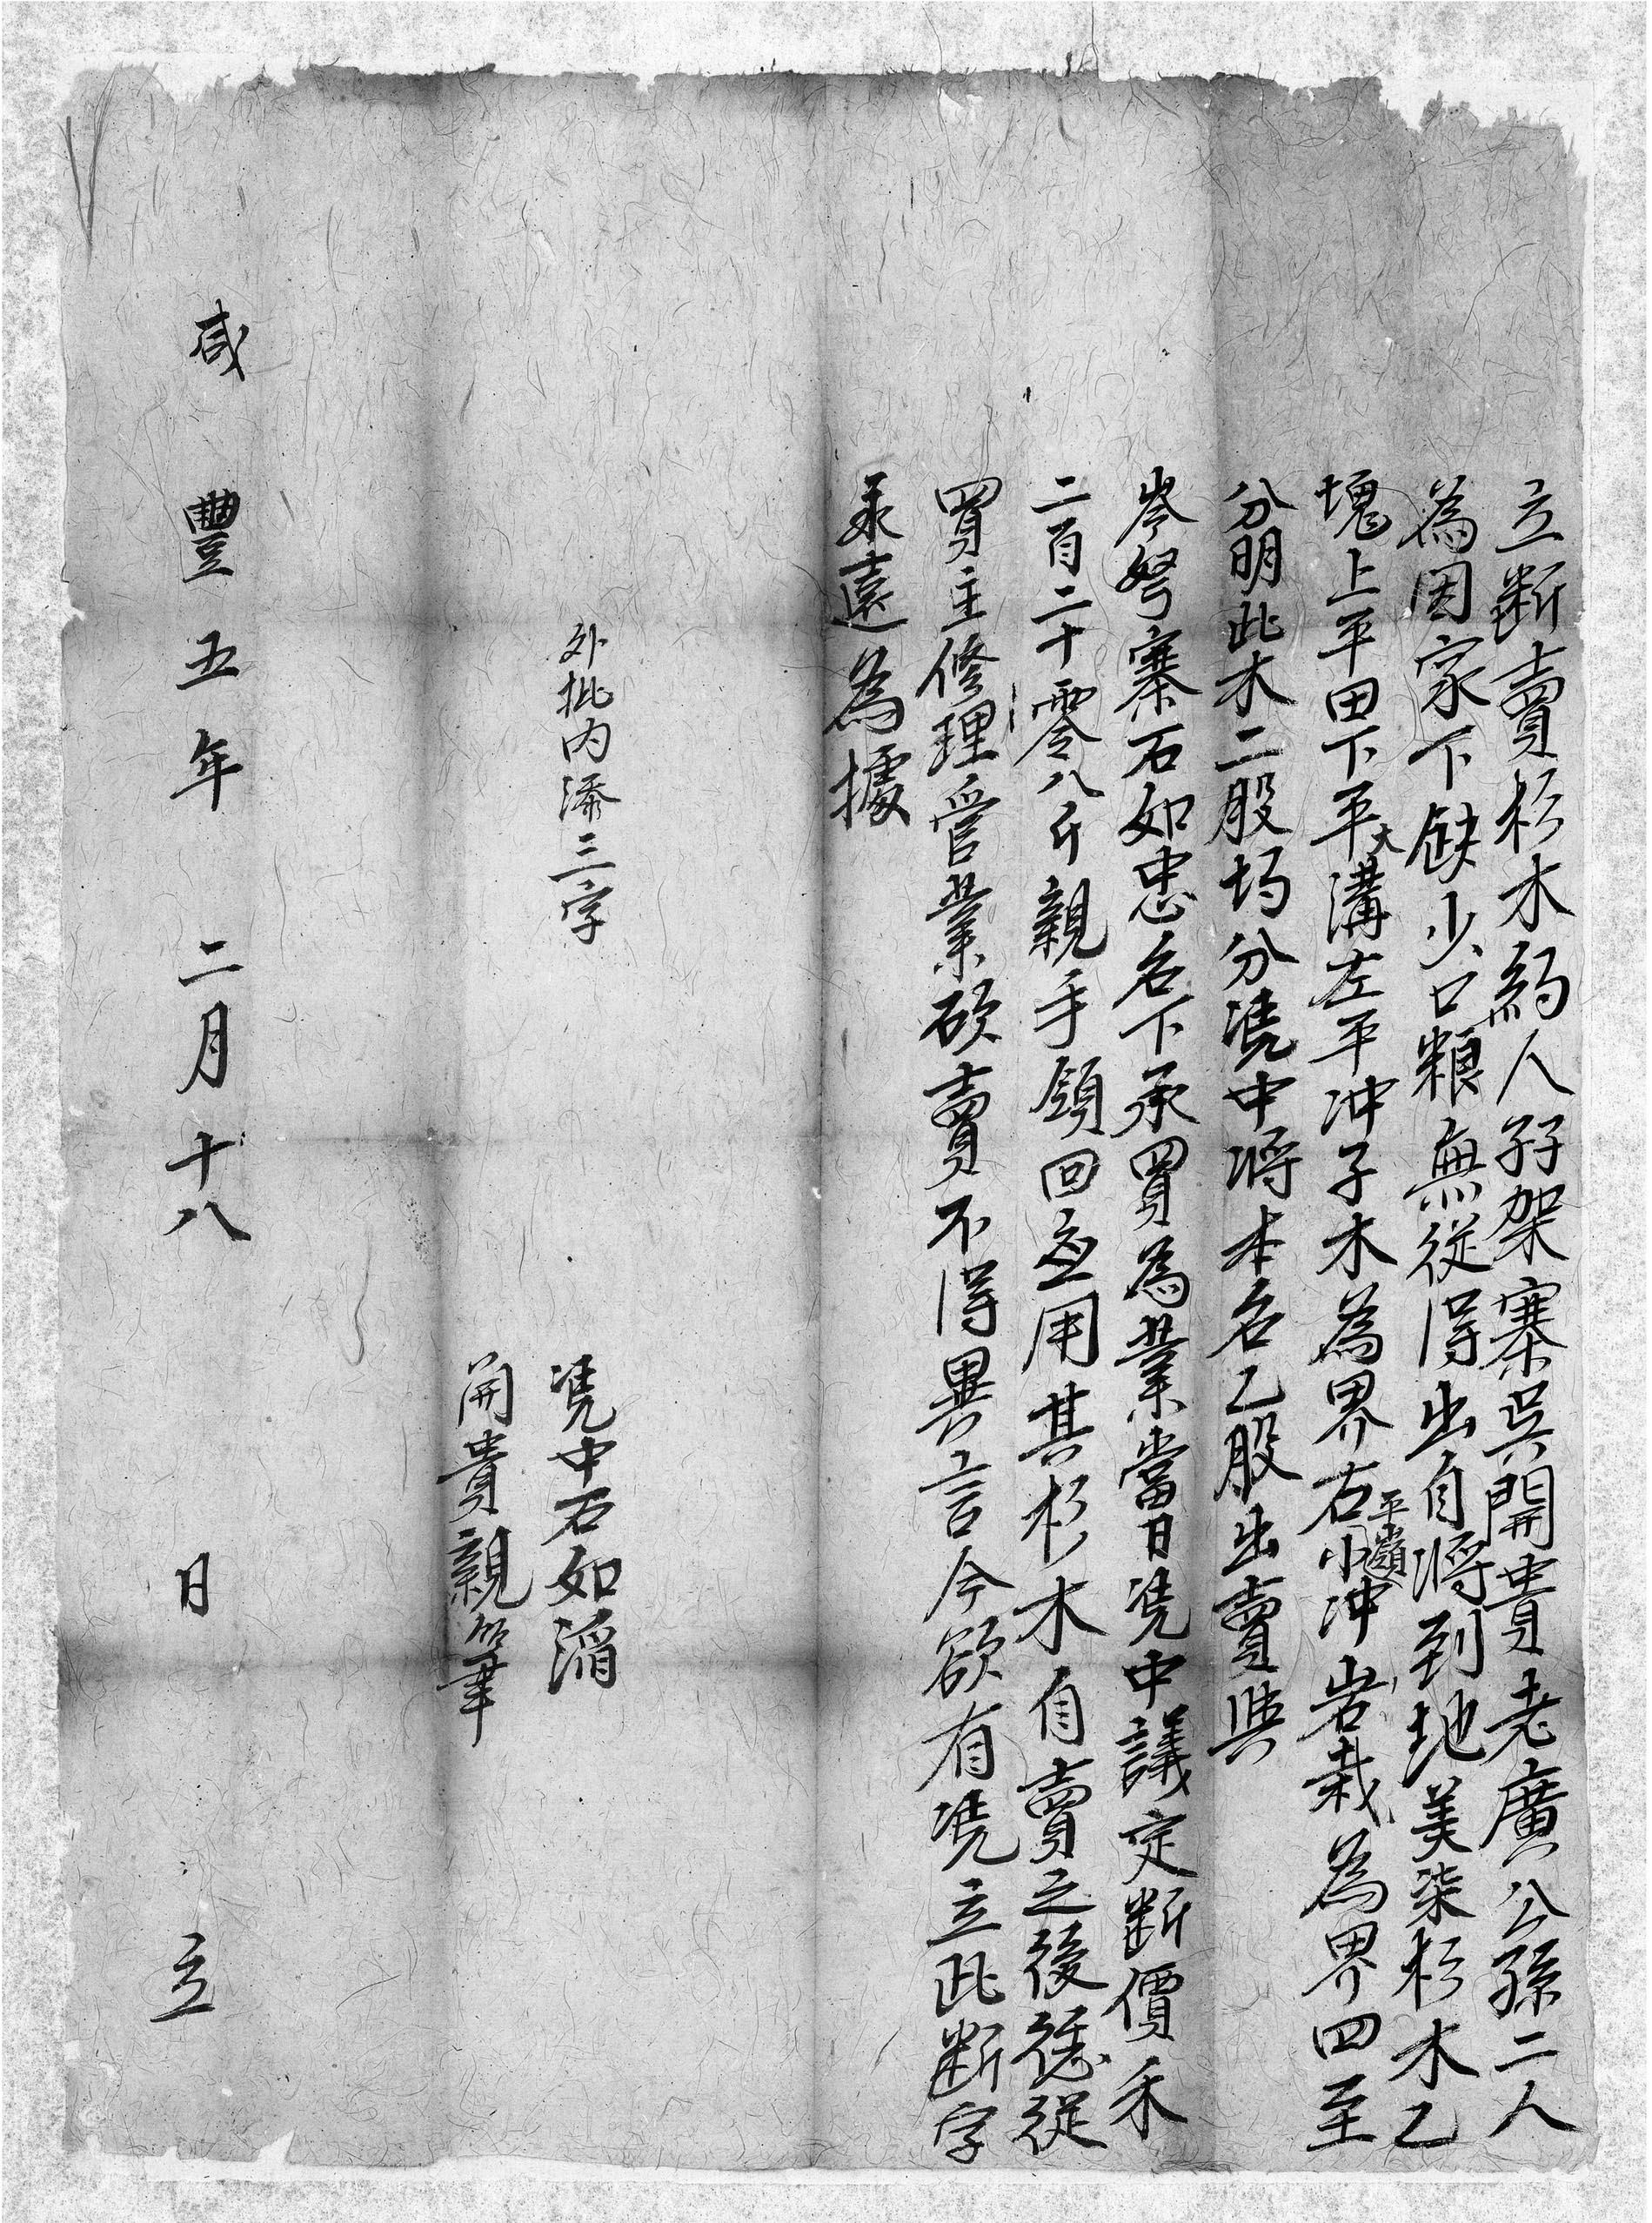 立斷賣杉木約人孖架寨吳開貴老廣公孫二人
為因家下缺少口粮無從得出自將到地美柒杉木乙
塊上平田下平大溝左平冲子木為界右平嶺小冲岩栽為界四至
分明此木二股均分凴中將本名乙股出賣與
岑努寨石如忠名下承買為業當日凴中議定斷價禾
二百二十零八斤親手領回應用其杉木自賣之後恁從
買主修理管業砍賣不得異言今欲有凴立此斷字
永遠為據
外批內添三字
凴中石如滔
開貴親筆
咸豐五年二月十八日立